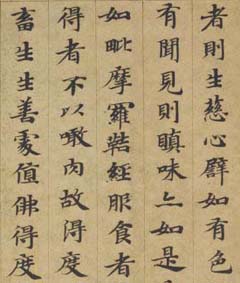 者則生慈心譬如有色
有聞見則瞋味亦如是
如毗摩羅鞊經服食者
得者不以噉肉故得度
畜生生善處值佛得度